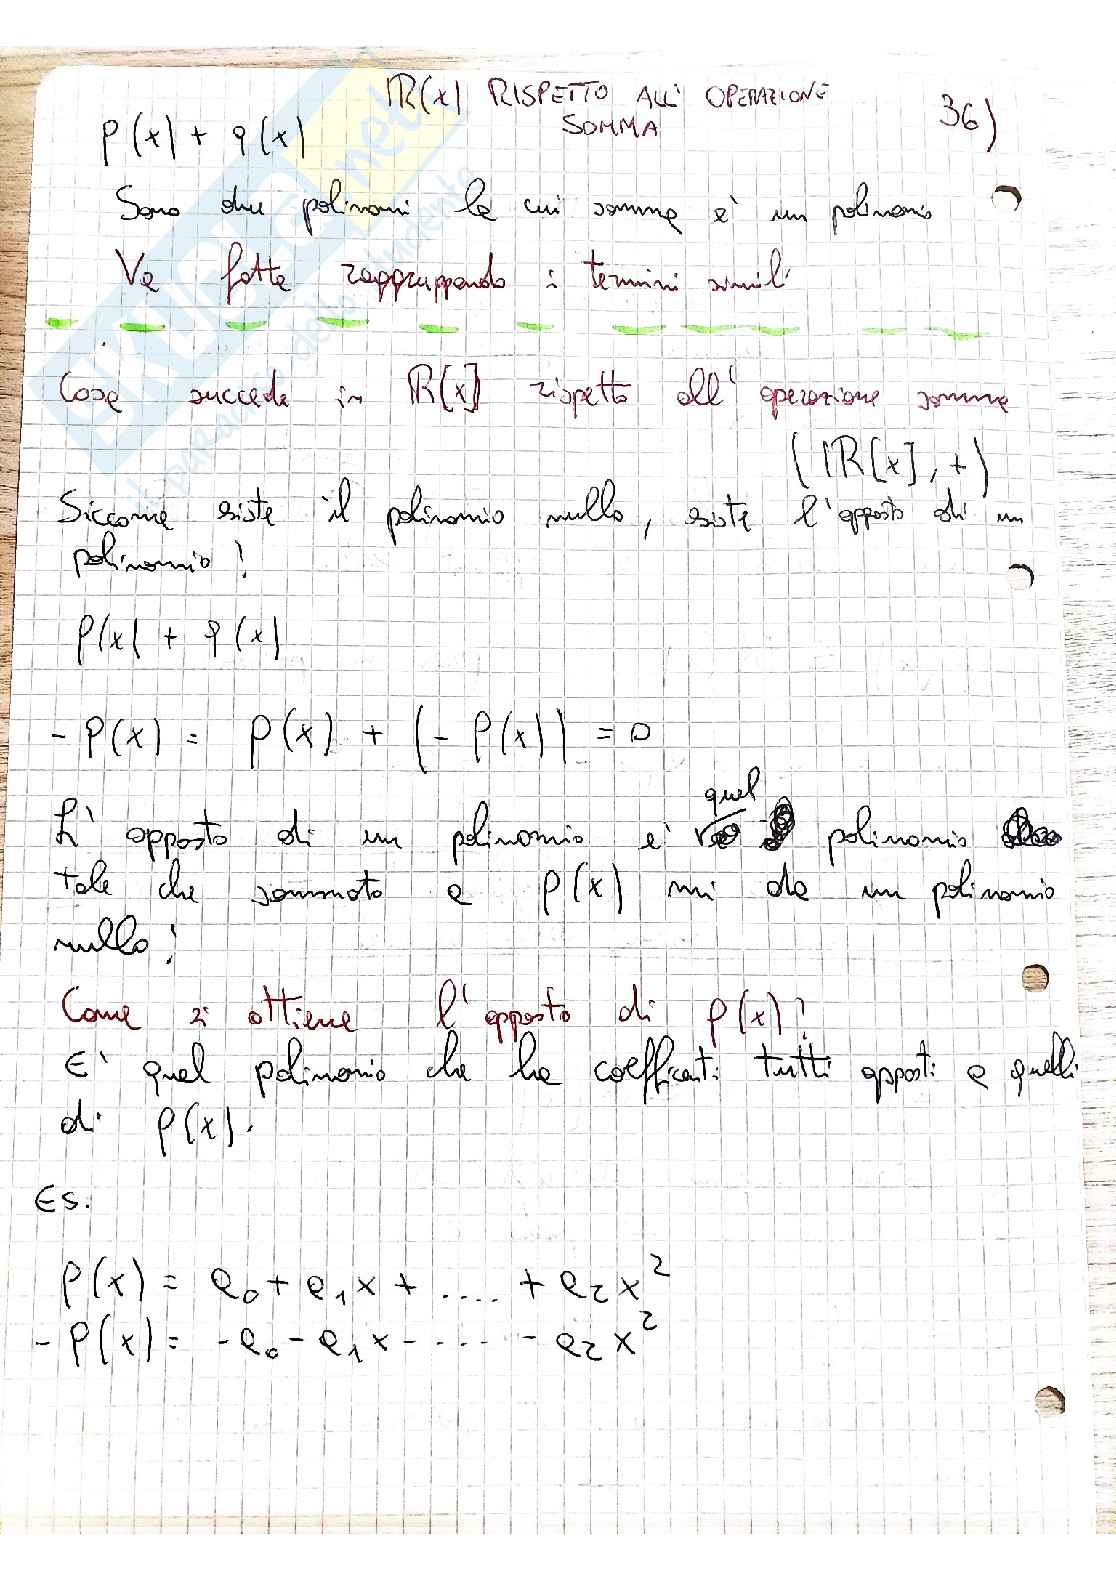 ℝ(x) RISPETTO ALL' OPERAZIONE
SOMMA
36)
p(x) + q(x)
Sono due polinomi la cui somma e' un polinomio
Va fatta raggruppando i termini simili
Cosa succede in ℝ[x] rispetto all' operazione somma
(ℝ[x], +)
Siccome esiste il polinomio nullo, esiste l'opposto di un
polinomio?
p(x) + q(x)
- p(x) = p(x) + (- p(x)) = 0
quel
L' opposto di un polinomio e' polinomio
tale che sommato a p(x) mi da un polinomio
nullo!
Come si ottiene l'opposto di p(x)?
E' quel polinomio che ha coefficenti tutti opposti a quelli
di p(x).
Es:
p(x) = a₀ + a₁x + .... + a₂x²
- p(x) = - a₀ - a₁x - .... - a₂x²